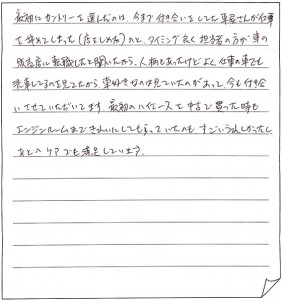 最初にカントリーを選んだのは、今まで付き合いをしてた車屋さんが仕事
を辞めてしまった(店をしめた)のと、タイミング良く担当者の方が車の
販売店に転職したと聞いたから。人柄もあったけどよく仕事の車でも
来てるのを見てたから、車好きなのは見ていたのがあって、今も付き合
いさせていただいてます。最初のハイエースを中古で買った時も
エンジンルームまできれいにしてもらっていたのも、すごいうれしかったし
アフターケアでも満足しています。